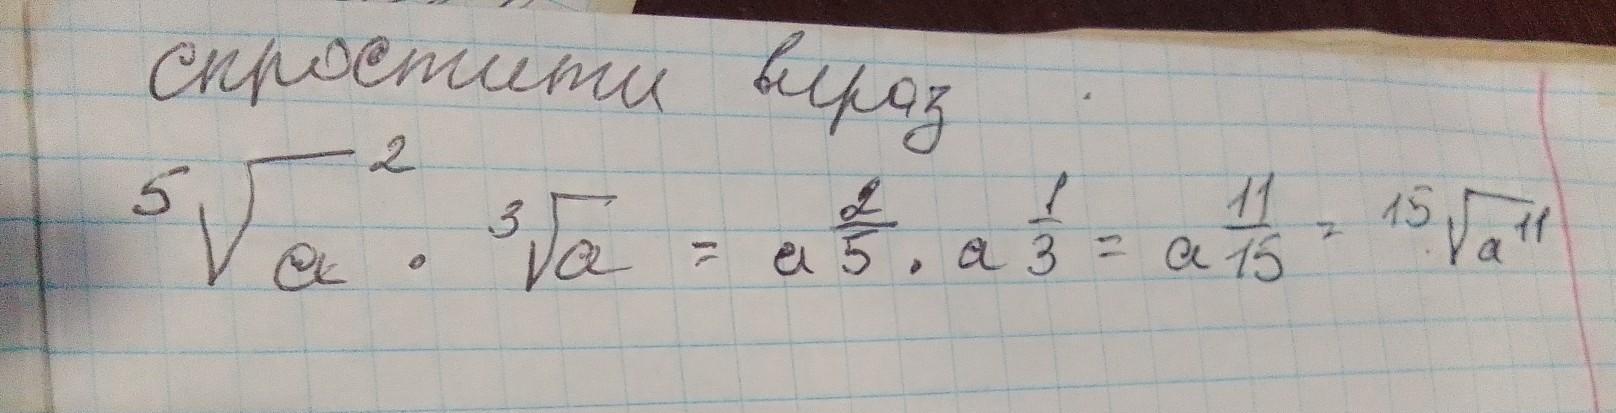 спростити вираз
⁵√a² · ³√a = a^(2/5) · a^(1/3) = a^(11/15) = ¹⁵√a¹¹